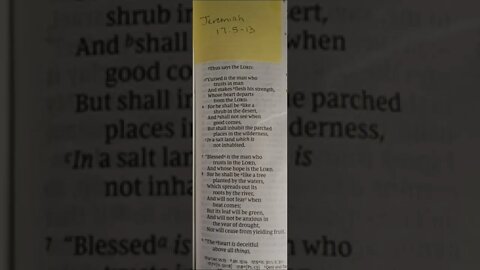 Jeremiah
17:5-13
Thus says the LORD:
"Cursed is the man who
trusts in man
And makes flesh his strength,
Whose heart departs
from the LORD.
6 For he shall be like a
shrub in the desert,
And shall not see when
good comes,
But shall inhabit the parched
places in the wilderness,
In a salt land which is
not inhabited.
7 "Blessed is the man who
trusts in the LORD,
And whose hope is the LORD.
8 For he shall be like a tree
planted by the waters,
Which spreads out its
roots by the river,
And will not fear when
heat comes;
But its leaf will be green,
And will not be anxious in
the year of drought,
Nor will cease from yielding fruit.
9 "The heart is deceitful
above all things,
shrub in
And ᵇshall when
good
But shall the parched
places in
ᶜIn a salt land is
not
7 "Blessedᵃ is man who